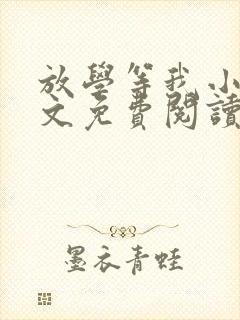 放學等我小
文免費閱讀
墨衣青蛙